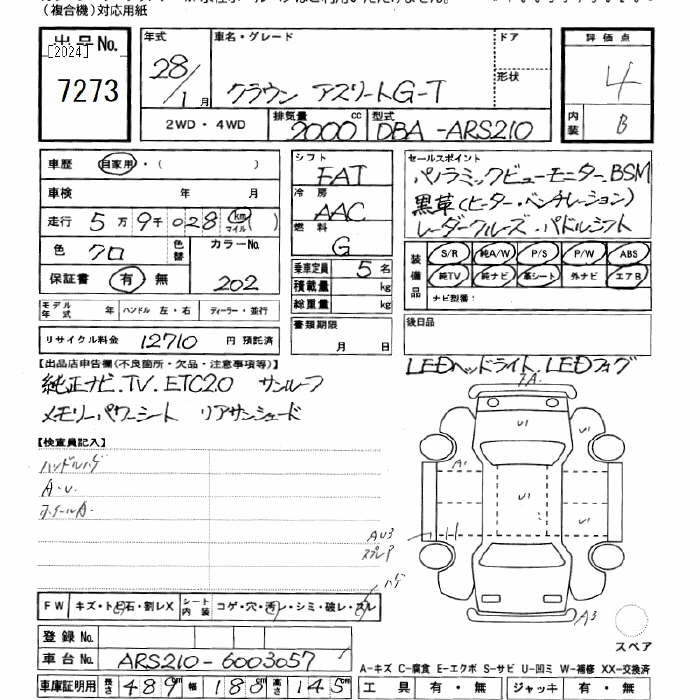 (複合機)対応用紙
出品No.
[2024]
7273
年式
28/1月
車名・グレード
クラウン アスリートG-T
ドア
形状
評価点
4
内装
B
2WD・4WD
排気量
2000cc
型式
DBA-ARS210
車歴 自家用・( )
車検 年 月
走行 5万9千028 km マイル ( )
色 クロ
色替
カラーNo.
202
保証書 有・無
モデル年式 年 ハンドル 左・右 ディーラー・並行
リサイクル料金 12710 円 預託済
シフト
FAT
冷房
AAC
燃料
G
乗車定員 5名
積載量 kg
総重量 kg
書類期限
月 日
セールスポイント
パノラミックビューモニター.BSM
黒革(ヒーター・ベンチレーション)
レーダークルーズ.パドルシフト
装備品
S/R 純A/W P/S P/W ABS
純TV 純ナビ 革シート 外ナビ エアB
ナビ型番:
後日品
LEDヘッドライト.LEDフォグ
【出品店申告欄(不良箇所・欠品・注意事項等)】
純正ナビ.TV.ETC2.0 サンルーフ
メモリーパワーシート リアサンシェード
【検査員記入】
ハンドルハゲ
A・U.
ホイールA.
A
U1
U1
A1
U1
U1
AU3
スレP
ハゲ
A3
スペア
FW キズ・トビ石・割レX
シート内装 コゲ・穴・汚レ・シミ・破レ・スレ
登録No.
車台No. ARS210-6003057
車庫証明用 長さ 489 幅 180 高さ 145
A-キズ C-腐食 E-エクボ S-サビ U-凹ミ W-補修 XX-交換済
工具 有・無 ジャッキ 有・無